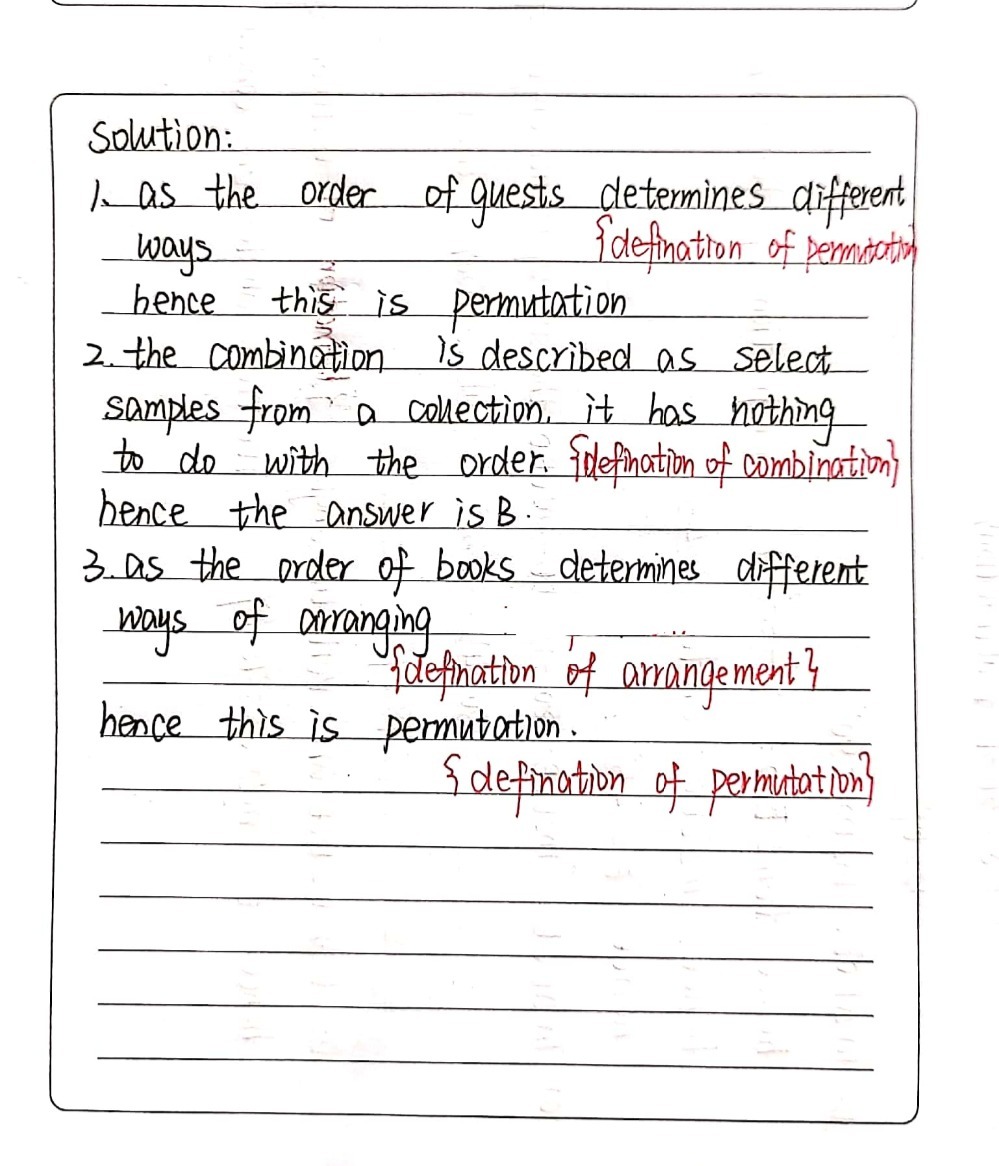 Solution:
1. as the order of guests determines different
ways {defination of permutation
hence this is permutation
2. the combination is described as select
samples from a collection. it has nothing
to do with the order. {defination of combination}
hence the answer is B.
3. as the order of books determines different
ways of arranging
{defination of arrangement}
hence this is permutation.
{defination of permutation}